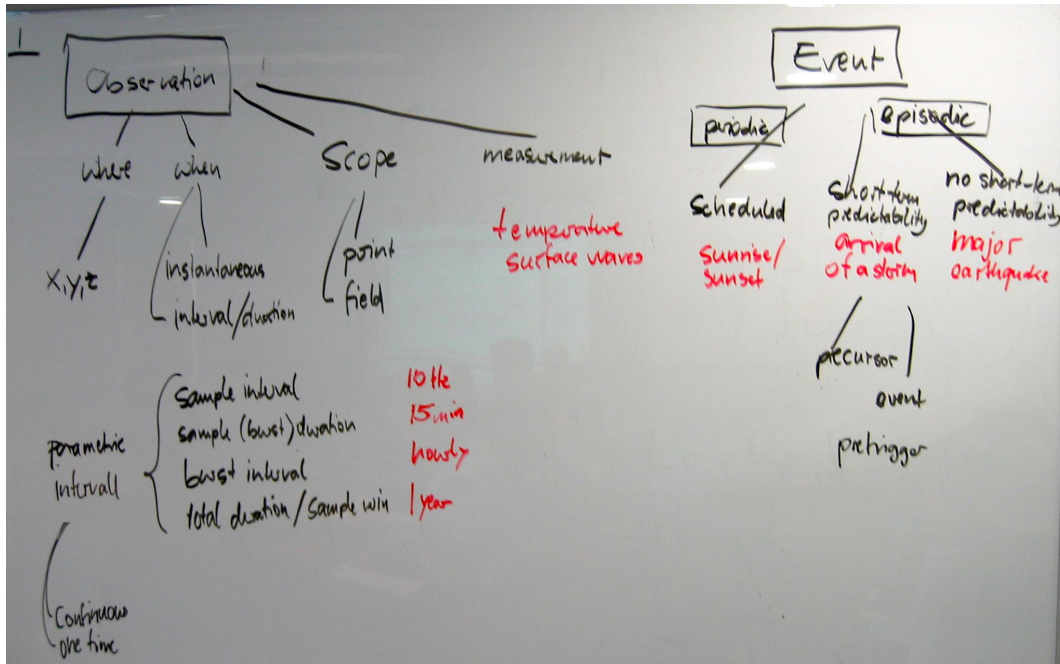 1
Observation
where
when
Scope
measurement
x,y,z
instantaneous
interval/duration
point
field
temperature
surface waves
parametric
intervall
sample interval 10 Hz
sample (burst) duration 15 min
burst interval hourly
total duration / sample win 1 year
continuous
one time
Event
periodic
episodic
scheduled
sunrise/
sunset
short-term
predictability
arrival
of a storm
no short-term
predictability
major
earthquake
precursor
event
pretrigger